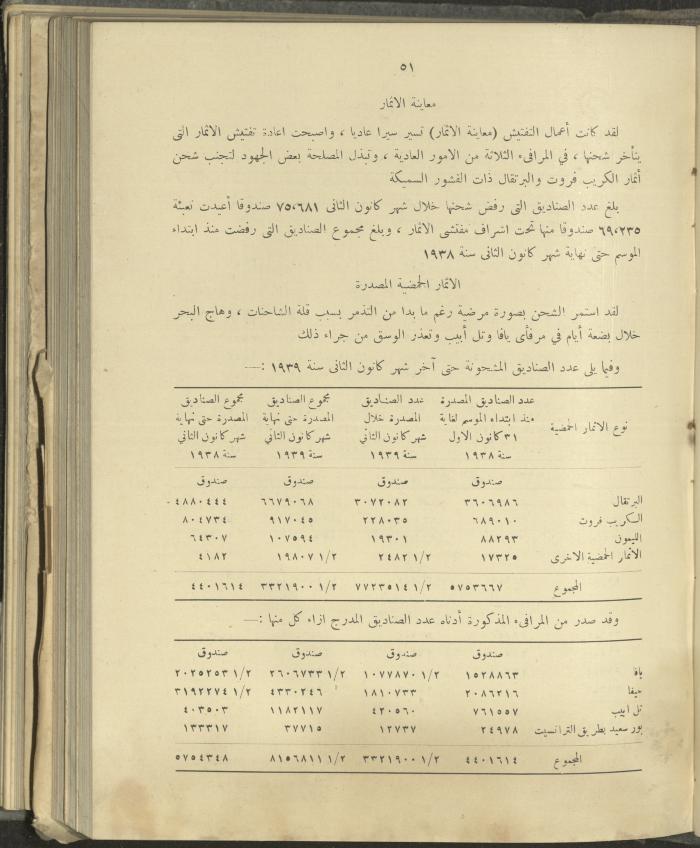 ٥١
معاينة الاثمار
لقد كانت أعمال التفتيش (معاينة الاثمار) تسير سيرا عاديا ، واصبحت اعادة تفتيش الاثمار التى
يتأخر شحنها ، في المرافىء الثلاثة من الامور العادية ، وتبذل المصلحة بعض الجهود لتجنب شحن
أثمار الكريب فروت والبرتقال ذات القشور السميكة
بلغ عدد الصناديق التى رفض شحنها خلال شهر كانون الثانى ٧٥،٦٨١ صندوقا أعيدت تعبئة
٦٩،٢٣٥ صندوقا منها تحت اشراف مفتشى الاثمار ، وبلغ مجموع الصناديق التى رفضت منذ ابتداء
الموسم حتى نهاية شهر كانون الثانى سنة ١٩٣٨
الاثمار الحمضية المصدرة
لقد استمر الشحن بصورة مرضية رغم ما بدا من التذمر بسبب قلة الشاحنات ، وهاج البحر
خلال بضعة أيام في مرفأى يافا وتل أبيب وتعذر الوسق من جراء ذلك
وفيما يلى عدد الصناديق المشحونة حتى آخر شهر كانون الثانى سنة ١٩٣٩ :—
نوع الاثمار الحمضية عدد الصناديق المصدرة منذ ابتداء الموسم لغاية ٣١ كانون الاول سنة ١٩٣٨ عدد الصناديق المصدرة خلال شهر كانون الثاني سنة ١٩٣٩ مجموع الصناديق المصدرة حتى نهاية شهر كانون الثاني سنة ١٩٣٩ مجموع الصناديق المصدرة حتى نهاية شهر كانون الثاني سنة ١٩٣٨
صندوق صندوق صندوق صندوق
البرتقال ٣٦٠٦٩٨٦ ٣٠٧٢٠٨٢ ٦٦٧٩٠٦٨ ٤٨٨٠٤٤٤
الكريب فروت ٦٨٩٠١٠ ٢٢٨٠٣٥ ٩١٧٠٤٥ ٨٠٤٧٣٤
الليمون ٨٨٢٩٣ ١٩٣٠١ ١٠٧٥٩٤ ٦٤٣٠٧
الاثمار الحمضية الاخرى ١٧٣٢٥ ٢٤٨٢ ١/٢ ١٩٨٠٧ ١/٢ ٤١٨٢
المجموع ٥٧٥٣٦٦٧ ٧٧٢٣٥١٤ ١/٢ ٣٣٢١٩٠٠ ١/٢ ٤٤٠١٦١٤
وقد صدر من المرافىء المذكورة أدناه عدد الصناديق المدرج ازاء كل منها :—
صندوق صندوق صندوق صندوق
يافا ١٥٢٨٨٦٣ ١٠٧٧٨٧٠ ١/٢ ٢٦٠٦٧٣٣ ١/٢ ٢٠٢٥٢٥٣ ١/٢
حيفا ٢٠٨٦٢١٦ ١٨١٠٧٣٣ ٤٣٣٠٢٤٦ ٣١٩٢٢٧٤ ١/٢
تل ابيب ٧٦١٥٥٧ ٤٢٠٥٦٠ ١١٨٢١١٧ ٤٠٣٥٠٣
بور سعيد بطريق الترانسيت ٢٤٩٧٨ ١٢٧٣٧ ٣٧٧١٥ ١٣٣٣١٧
المجموع ٤٤٠١٦١٤ ٣٣٢١٩٠٠ ١/٢ ٨١٥٦٨١١ ١/٢ ٥٧٥٤٣٤٨